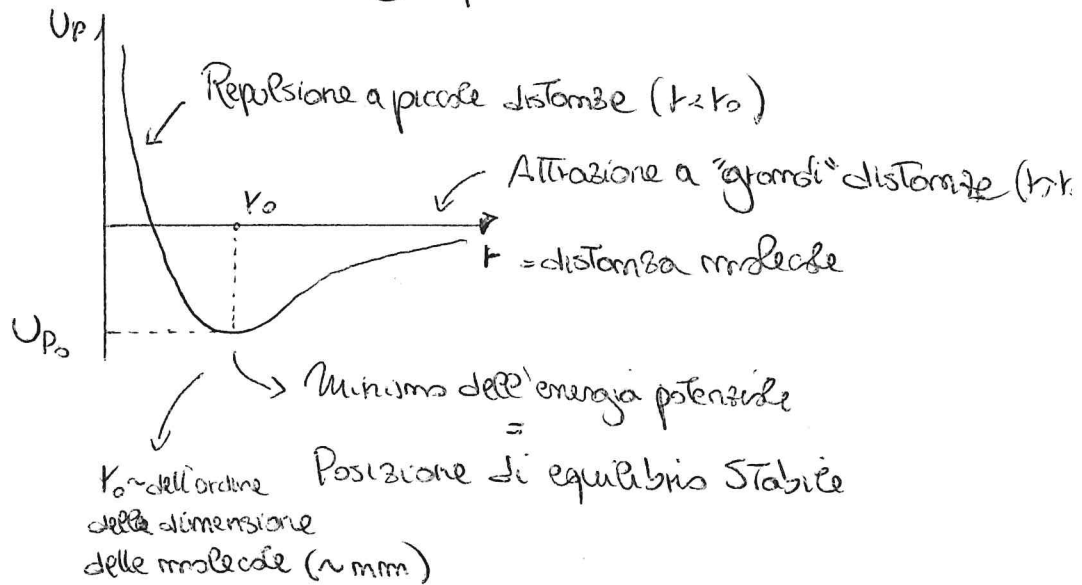 Up
Repulsione a piccole distanze (r<r₀)
Attrazione a "grandi" distanze (r>r
r₀
r = distanza molecole
Up₀
Minimo dell'energia potenziale
=
Posizione di equilibrio Stabile
r₀~dell'ordine
della dimensione
delle molecole (~nm)